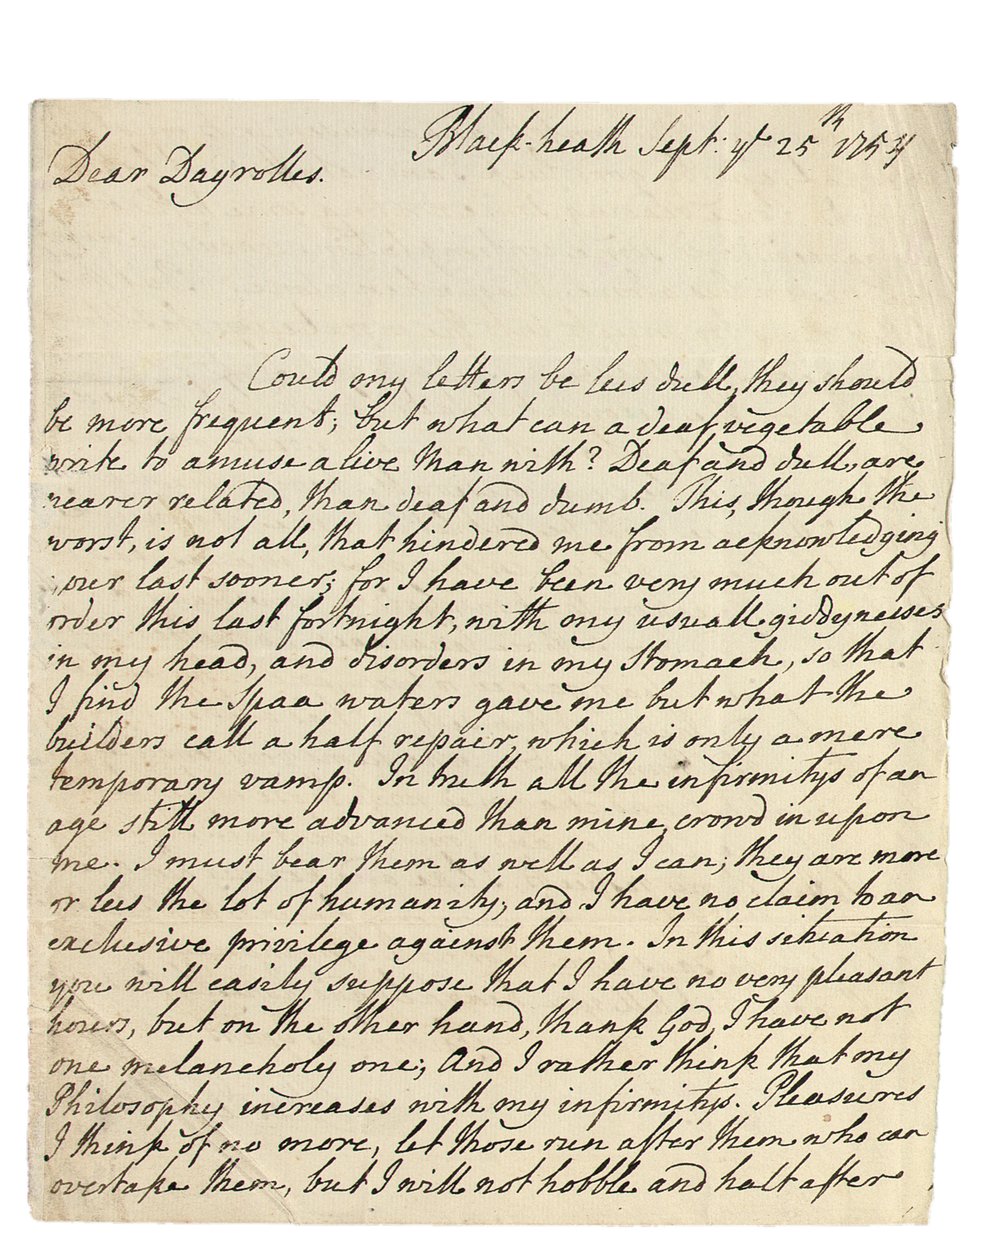 Black-heath Sept: ye 25th 1754
Dear Dayrolles.
Could my letters be less dull, they should
be more frequent; but what can a deaf vegetable
write to amuse a live man with? Deaf and dull, are
nearer related, than deaf and dumb. This, though the
worst, is not all, that hindered me from acknowledging
your last sooner; for I have been very much out of
order this last fortnight, with my usuall giddynesses
in my head, and disorders in my stomach, so that
I find the Spaa waters gave me but what the
builders call a half repair, which is only a mere
temporary vamp. In truth all the infirmitys of an
age still more advanced than mine, crowd in upon
me. I must bear them as well as I can, they are more
or less the lot of humanity, and I have no claim to an
exclusive privilege against them. In this situation
you will easily suppose that I have no very pleasant
hours, but on the other hand, thank God, I have not
one melancholy one; And I rather think that my
Philosophy increases with my infirmitys. Pleasures
I think of no more, let those run after them who can
overtake them, but I will not hobble and halt after